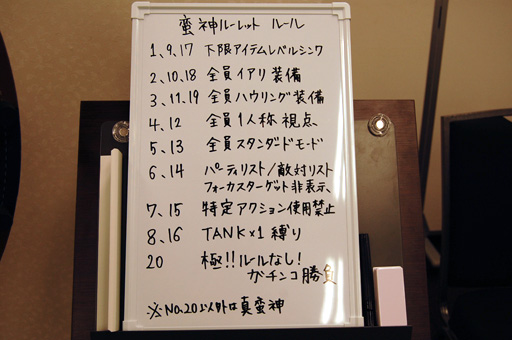 蛮神ルーレット ルール
1、9、17 下限アイテムレベルシンク
2、10、18 全員イアリ装備
3、11、19 全員ハウリング装備
4、12 全員1人称視点
5、13 全員スタンダードモード
6、14 パーティリスト/敵対リスト
フォーカスターゲット非表示、
7、15 特定アクション使用禁止
8、16 TANK×1縛り
20 極!!ルールなし!
ガチンコ勝負
※No.20以外は真蛮神